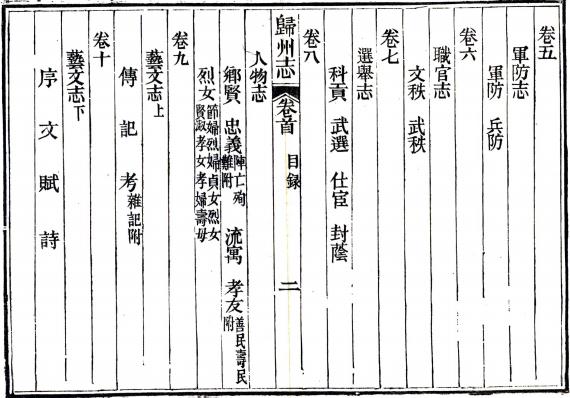 卷五
軍防志
軍防 兵防
卷六
職官志
文秩 武秩
卷七
選舉志
科貢 武選 仕宦 封蔭
卷八
歸州志 卷首 目錄 二
人物志
鄉賢 忠義陣亡殉難附 流寓 孝友善民壽民附
烈女節婦烈婦貞女烈女賢淑孝女孝婦壽母
卷九
藝文志上
傳 記 考雜記附
卷十
藝文志下
序 文 賦 詩